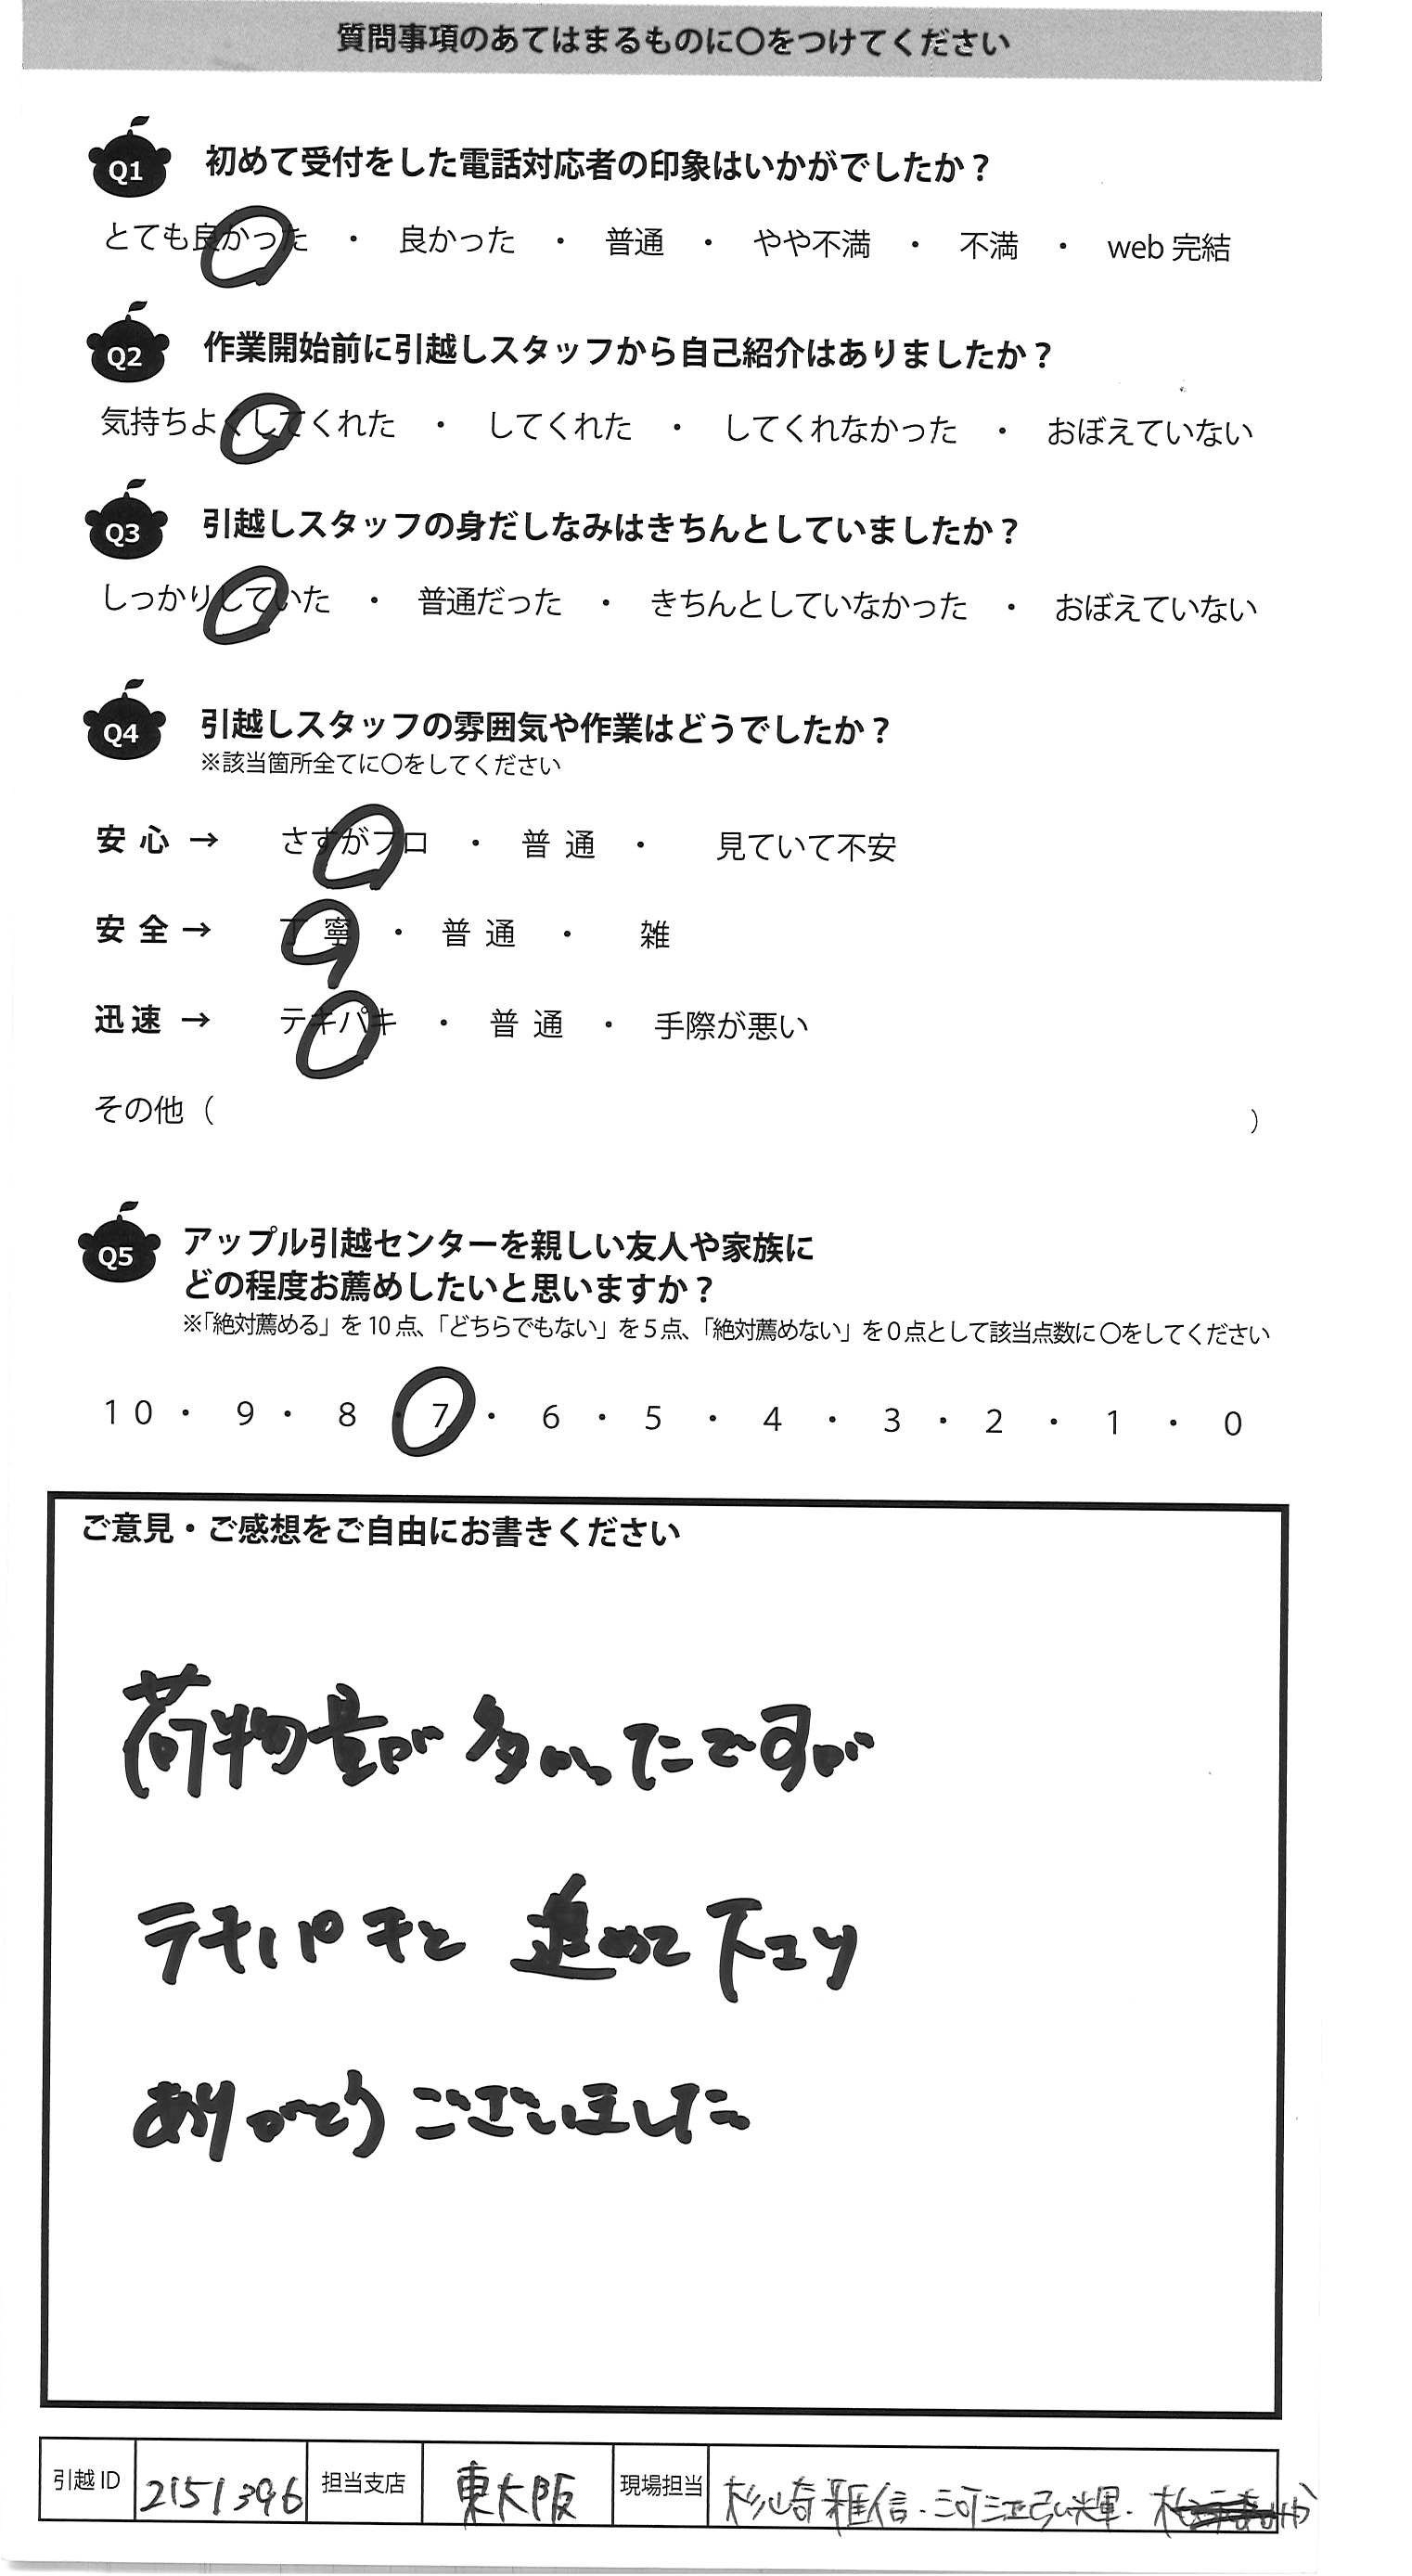 質問事項のあてはまるものに〇をつけてください
Q1 初めて受付をした電話対応者の印象はいかがでしたか？
とても良かった ・ 良かった ・ 普通 ・ やや不満 ・ 不満 ・ web 完結
Q2 作業開始前に引越しスタッフから自己紹介はありましたか？
気持ちよくしてくれた ・ してくれた ・ してくれなかった ・ おぼえていない
Q3 引越しスタッフの身だしなみはきちんとしていましたか？
しっかりしていた ・ 普通だった ・ きちんとしていなかった ・ おぼえていない
Q4 引越しスタッフの雰囲気や作業はどうでしたか？
※該当箇所全てに〇をしてください
安心 → さすがプロ ・ 普通 ・ 見ていて不安
安全 → 丁寧 ・ 普通 ・ 雑
迅速 → テキパキ ・ 普通 ・ 手際が悪い
その他（ ）
Q5 アップル引越センターを親しい友人や家族に
どの程度お薦めしたいと思いますか？
※「絶対薦める」を 10 点、「どちらでもない」を 5 点、「絶対薦めない」を 0 点として該当点数に 〇をしてください
10 ・ 9 ・ 8 ・ 7 ・ 6 ・ 5 ・ 4 ・ 3 ・ 2 ・ 1 ・ 0
ご意見・ご感想をご自由にお書きください
荷物量が多かったですが
テキパキと 進めて下さり
ありがとうございました。
引越 ID 2151396 担当支店 東大阪 現場担当 杉崎雅信・河江弘輝・